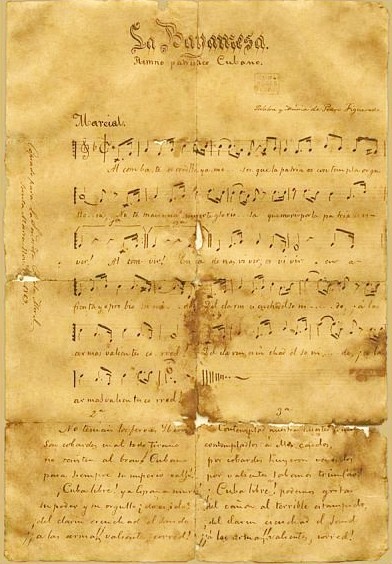 La Bayamesa.
Himno patriótico Cubano.
Palabra y Música de Pedro Figueredo
Marcial.
Al combate corred bayame ses que la patria os contempla orgu
llo sa no te mais una muerte glorio sa que morir por la patria es vi
vir! Al com vir! En ca de nas vi vir es vi vir en a
frenta y oprobio su mi do Del clarin escuchad el so ni do, ¡a las
armas valientes co rred! Del clarin escu chad el so ni do, ¡a las
armas valientes corred!
2ª 3ª
No temais los feroces Iberos
Son cobardes cual todo Tirano
no resiste al bravo Cubano
para siempre su imperio cayó.
¡Cuba libre! ya España murió
su poder y su orgullo ¿do es ido?
¡del clarin escuchad el sonido
¡¡a las armas valientes, corred!!
Contemplad nuestras huestes triunfantes
contempladlos a ellos caidos,
por cobardes huyeron vencidos
por valientes sabemos triunfar!
¡Cuba libre! podemos gritar
del cañon al terrible estampido,
¡del clarin escuchad el sonido
¡¡a las armas valientes, corred!!